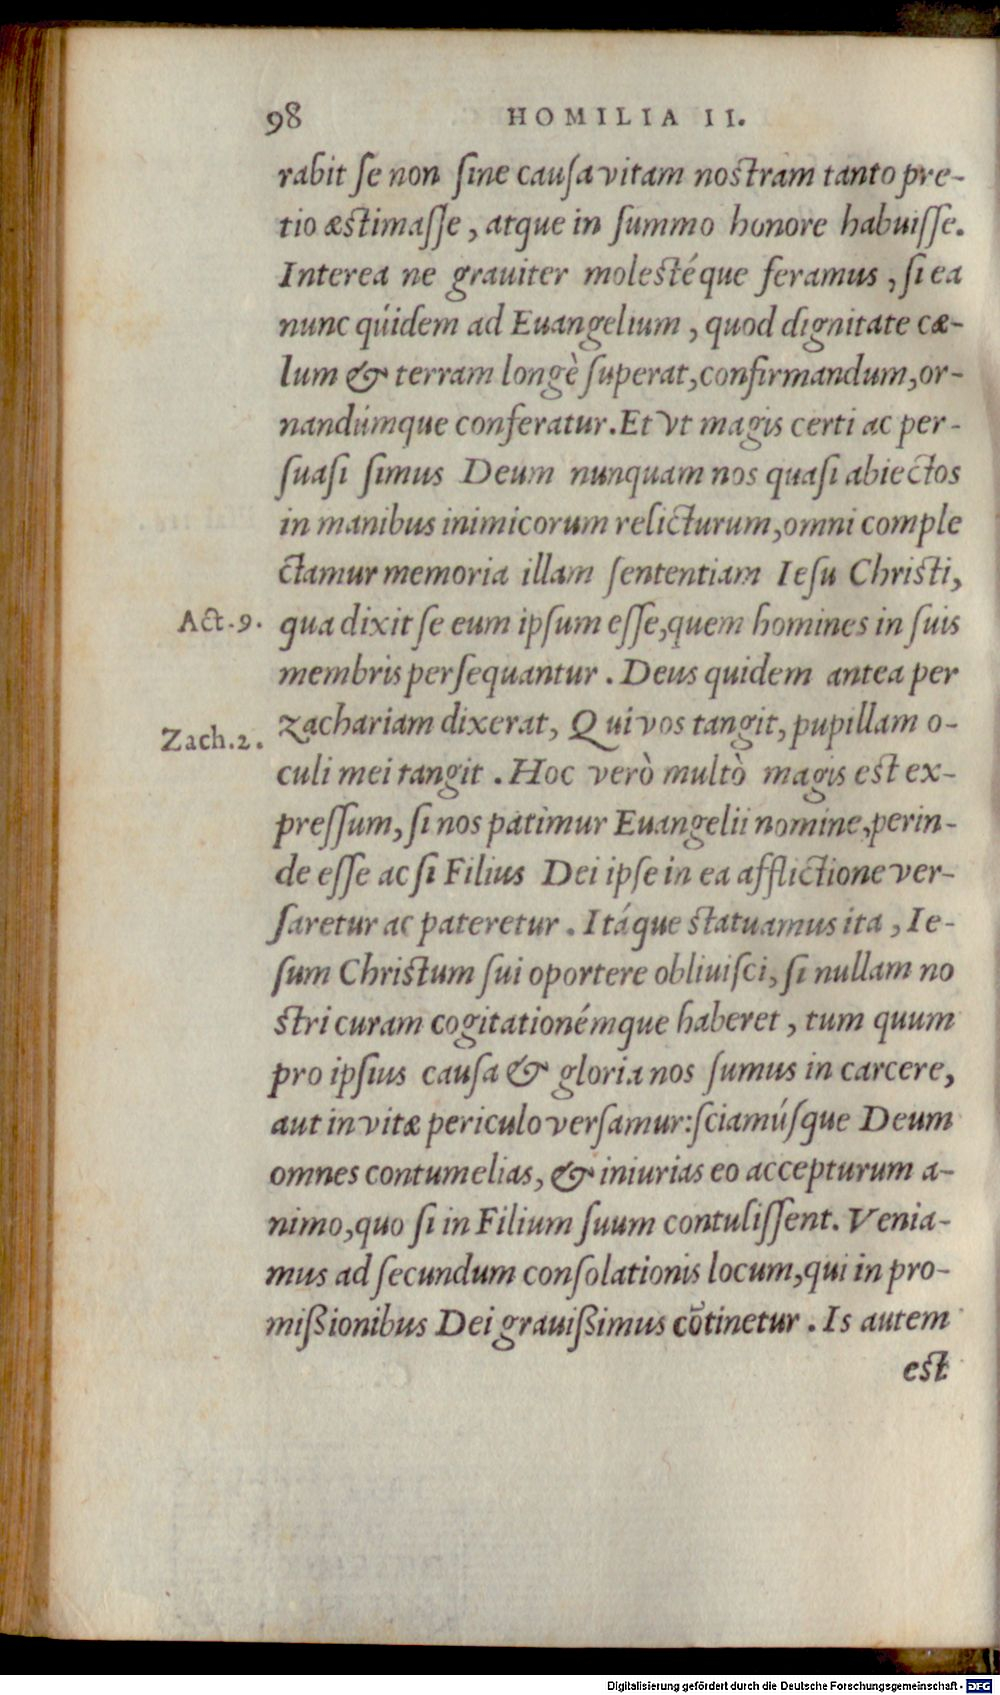 98 HOMILIA II.
rabit ſe non ſine cauſa vitam noſtram tanto pre-
tio æſtimaſſe, atque in ſummo honore habuiſſe.
Interea ne grauiter moleſtéque feramus, ſi ea
nunc qúidem ad Euangelium, quod dignitate cæ-
lum & terram longè ſuperat, confirmandum, or-
nandúmque conferatur. Et vt magis certi ac per-
ſuaſi ſimus Deum nunquam nos quaſi abiectos
in manibus inimicorum relicturum, omni comple
ctamur memoria illam ſententiam Ieſu Chriſti,
Act. 9. qua dixit ſe eum ipſum eſſe, quem homines in ſuis
membris perſequantur. Deus quidem antea per
Zach. 2. Zachariam dixerat, Qui vos tangit, pupillam o-
culi mei tangit. Hoc verò multò magis eſt ex-
preſſum, ſi nos patimur Euangelii nomine, perin-
de eſſe ac ſi Filius Dei ipſe in ea afflictione ver-
ſaretur ac pateretur. Itáque ſtatuamus ita, Ie-
ſum Chriſtum ſui oportere obliuiſci, ſi nullam no
ſtri curam cogitationémque haberet, tum quum
pro ipſius cauſa & gloria nos ſumus in carcere,
aut in vitæ periculo verſamur: ſciamúſque Deum
omnes contumelias, & iniurias eo accepturum a-
nimo, quo ſi in Filium ſuum contuliſſent. Venia-
mus ad ſecundum conſolationis locum, qui in pro-
mißionibus Dei grauißimus cōtinetur. Is autem
eſt
Digitalisierung gefördert durch die Deutsche Forschungsgemeinschaft - DFG